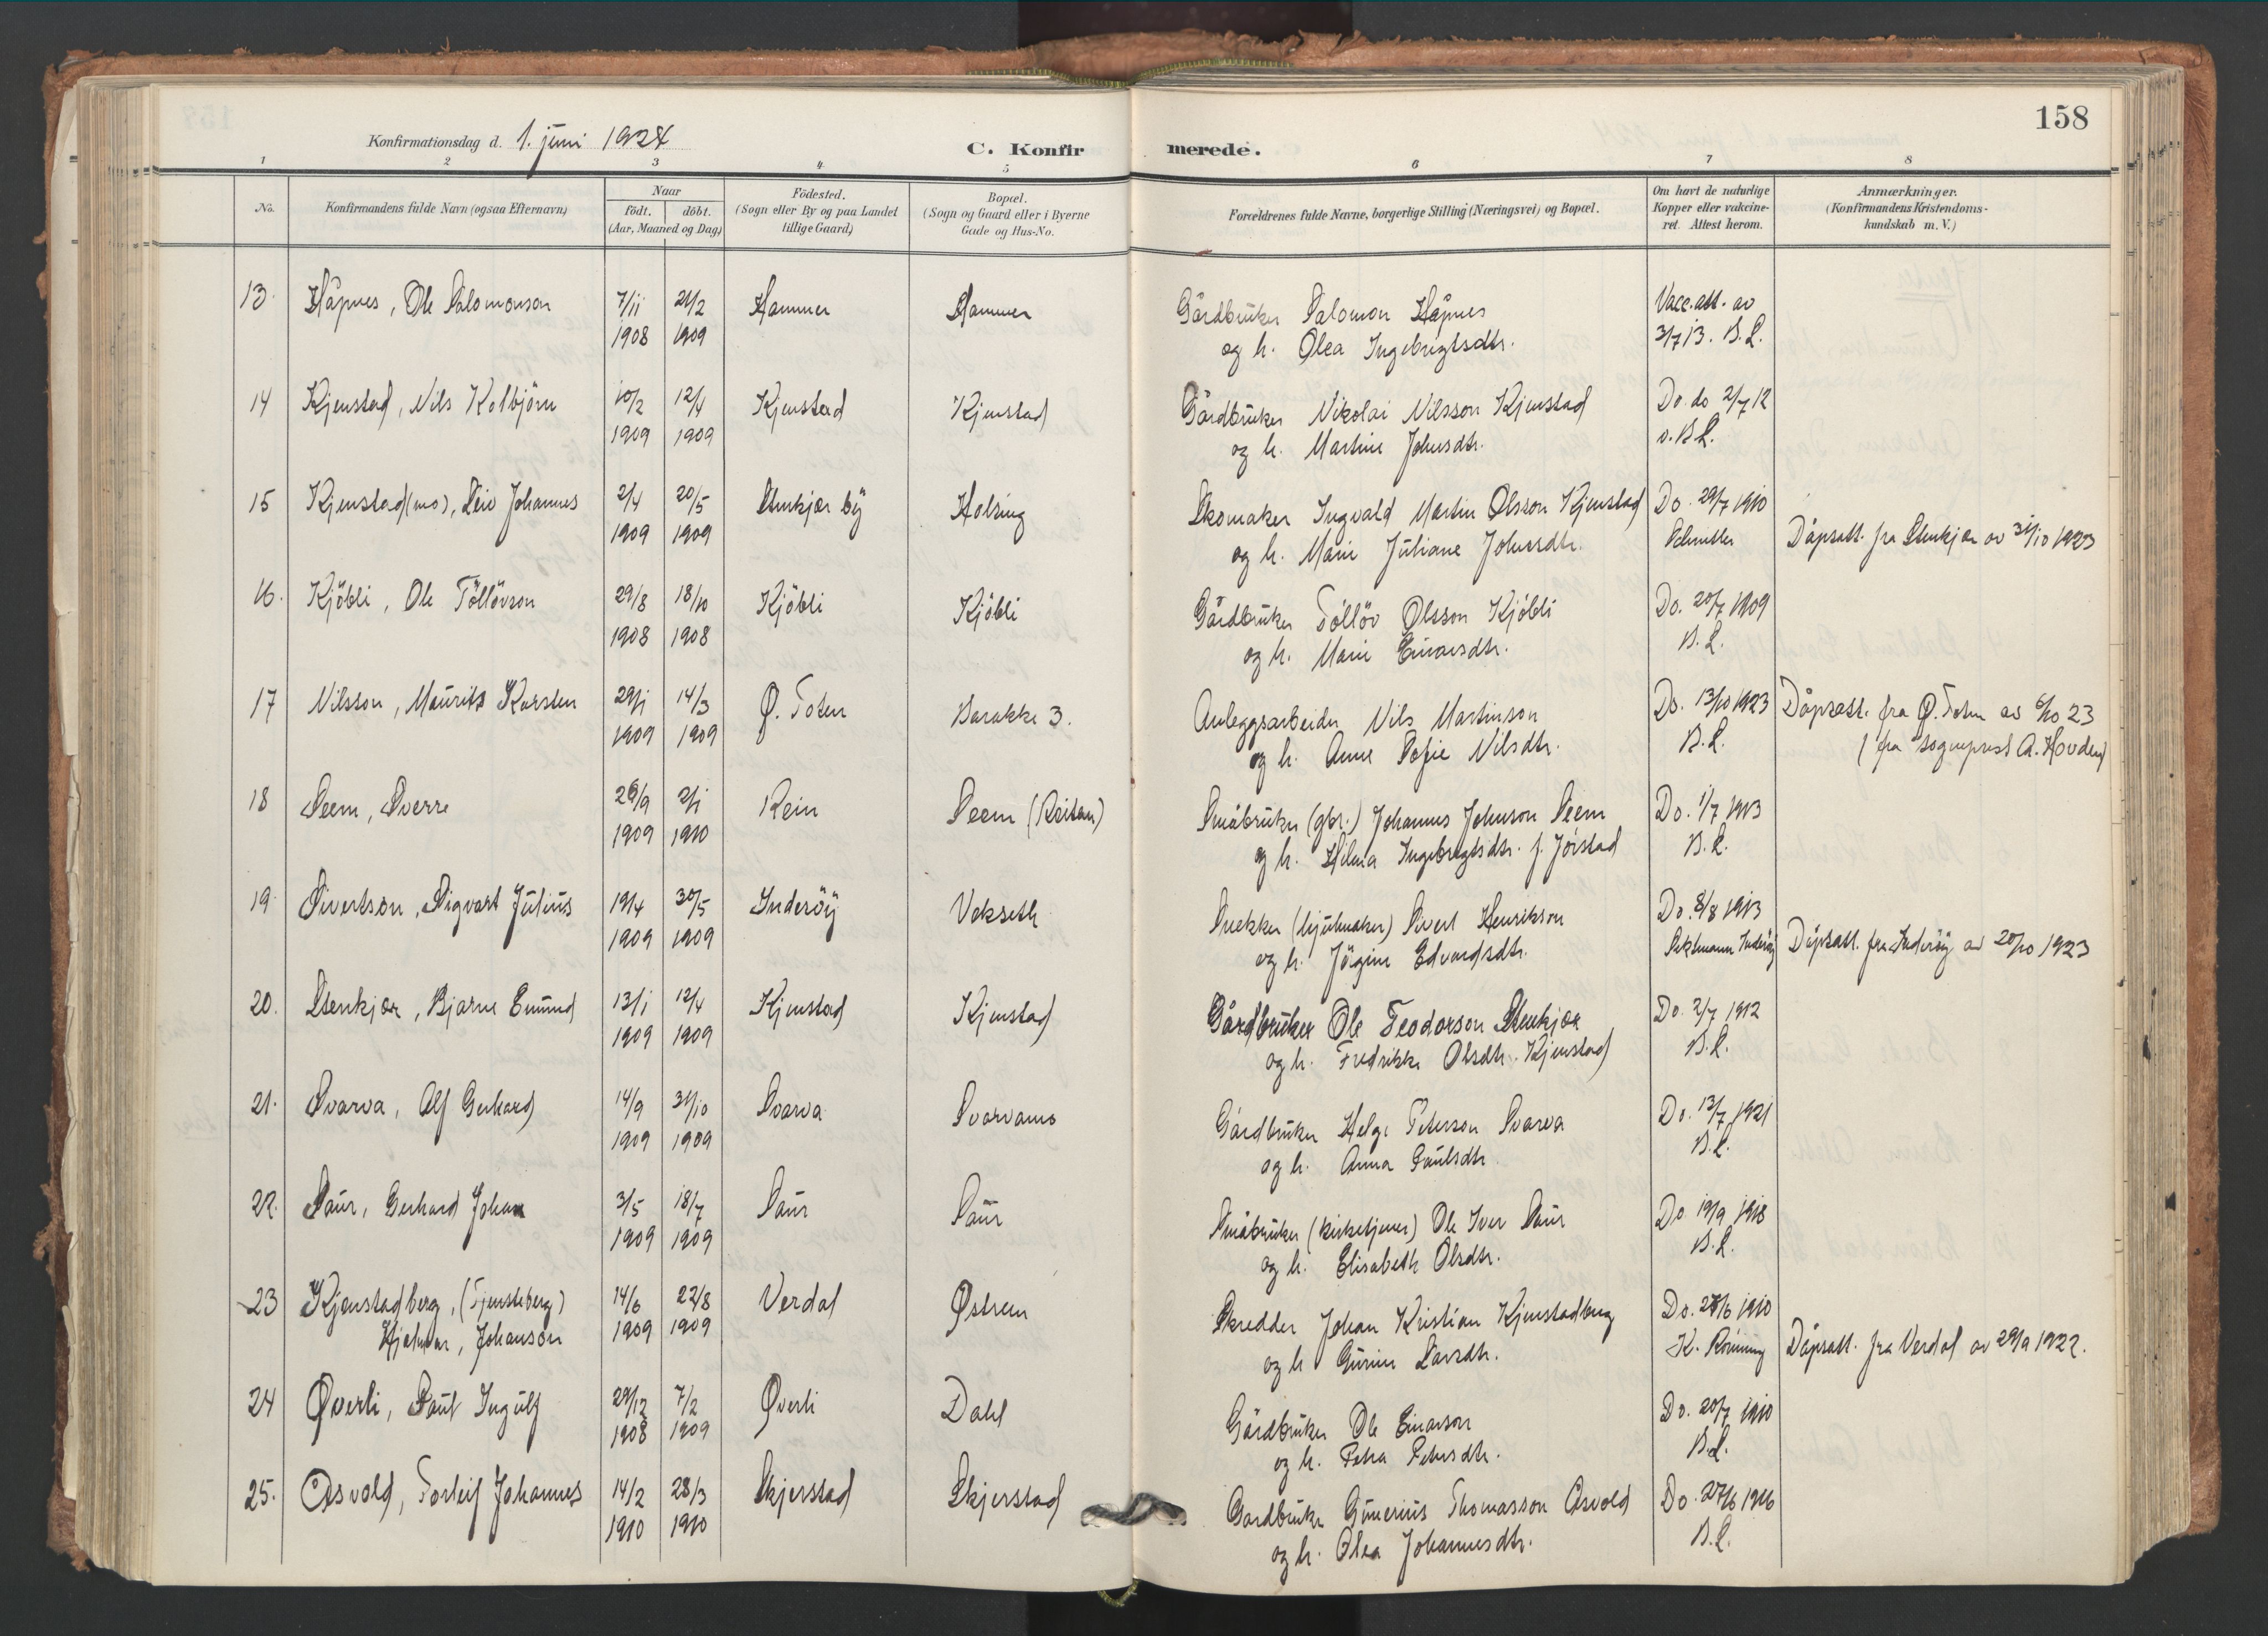 158
Konfirmationsdag d. 1. juni 1924
C. Konfirmerede.
1 2 3 4 5 6 7 8
No.
Konfirmandens fulde Navn (ogsaa Efternavn)
Naar
födt. döbt.
(Aar, Maaned og Dag)
Födested.
(Sogn eller By og paa Landet
tillige Gaard)
Bopæl.
(Sogn og Gaard eller i Byerne
Gade og Hus-No.
Forældrenes fulde Navne, borgerlige Stilling (Næringsvei) og Bopæl.
Om havt de naturlige
Kopper eller vakcine-
ret. Attest herom.
Anmærkninger.
(Konfirmandens Kristendoms-
kundskab m. V.)
13. Håpnes, Ole Salomonson 7/11 21/2 Hammer Hammer Gårdbruker Salomon Håpnes Vacc.att. av
1908 1909 og h. Olea Ingebrigtsdtr. 3/7 13. B.L.
14 Kjenstad, Nils Kolbjörn 10/2 12/4 Kjenstad Kjenstad Gårdbruker Nikolai Nilsson Kjenstad Do. do 2/7 12
1909 1909 og h. Martine Johnsdtr. v. B.L.
15 Kjenstad(mo), Leiv Johannes 2/4 20/5 Stenkjær by Holsing Skomaker Ingvald Martin Olsson Kjenstad Do. 29/7 1910
1909 1909 og h. Marie Juliane Johnsdtr. Dåpsatt. fra Stenkjær av 31/10 1923
16. Kjöbli, Ole Tollövson 29/8 18/10 Kjöbli Kjöbli Gårdbruker Tollöv Olsson Kjöbli Do. 20/7 1909
1908 1908 og h. Marie Einarsdtr. B.L.
17 Nilsson, Maurits Karsten 29/1 14/3 Ø. Toten Barakke 3. Anleggsarbeider Nils Martinson Do. 13/10 1923 Dåpsatt. fra Ø. Toten av 6/10 23
1909 1909 og h. Anne Sofie Nilsdtr. B.L. (fra sogneprest A. Hovden)
18 Seem, Sverre 26/9 2/1 Rein Seem (Reitan) Småbruker (gbr.) Johannes Johnson Seem Do. 1/7 1913
1909 1910 og h. Hilma Ingebrigtsdtr. f. Jörstad B.L.
19. Sivertson, Sigvart Julius 19/4 30/5 Inderöy Vekseth Snekker (hjulmaker) Sivert Henrikson Do. 8/8 1913
1909 1909 og h. Jörgine Edvardsdtr. Inderöy Dåpsatt. fra Inderöy av 20/10 1923
20. Stenkjær, Bjarne Emund 13/1 12/4 Kjenstad Kjenstad Gårdbruker Ole Teodorson Stenkjær Do. 2/7 1912
1909 1909 og h. Fredrikke Olsdtr. Kjenstad B.L.
21. Svarva, Alf Gerhard 14/9 31/10 Svarva Svarvamo Gårdbruker Helge Peterson Svarva Do. 13/7 1921
1909 1909 og h. Anna Paulsdtr. B.L.
22. Saur, Gerhard Johan 3/5 18/7 Saur Saur Småbruker (kirketjener) Ole Iver Saur Do. 19/9 1918
1909 1909 og h. Elisabeth Olsdtr. B.L.
23 Kjenstadberg, (Tjensteberg) 14/6 22/8 Verdal Østrem Skredder Johan Kristian Kjenstadberg Do. 27/6 1910
Hjalmar, Johanson 1909 1909 og h. Gurine Larsdtr. K. Rönning Dåpsatt. fra Verdal av 29/9 1922.
24 Øverli, Paul Ingulf 29/12 7/2 Øverli Dahl Gårdbruker Ole Einarson Do. 20/7 1910
1908 1909 og h. Petra Petersdtr. B.L.
25. Åsvold, Torleif Johannes 14/2 28/3 Skjerstad Skjerstad Gardbruker Gunerius Thomasson Åsvold Do. 27/6 1916
1910 1910 og h. Olea Johannesdtr. B.L.